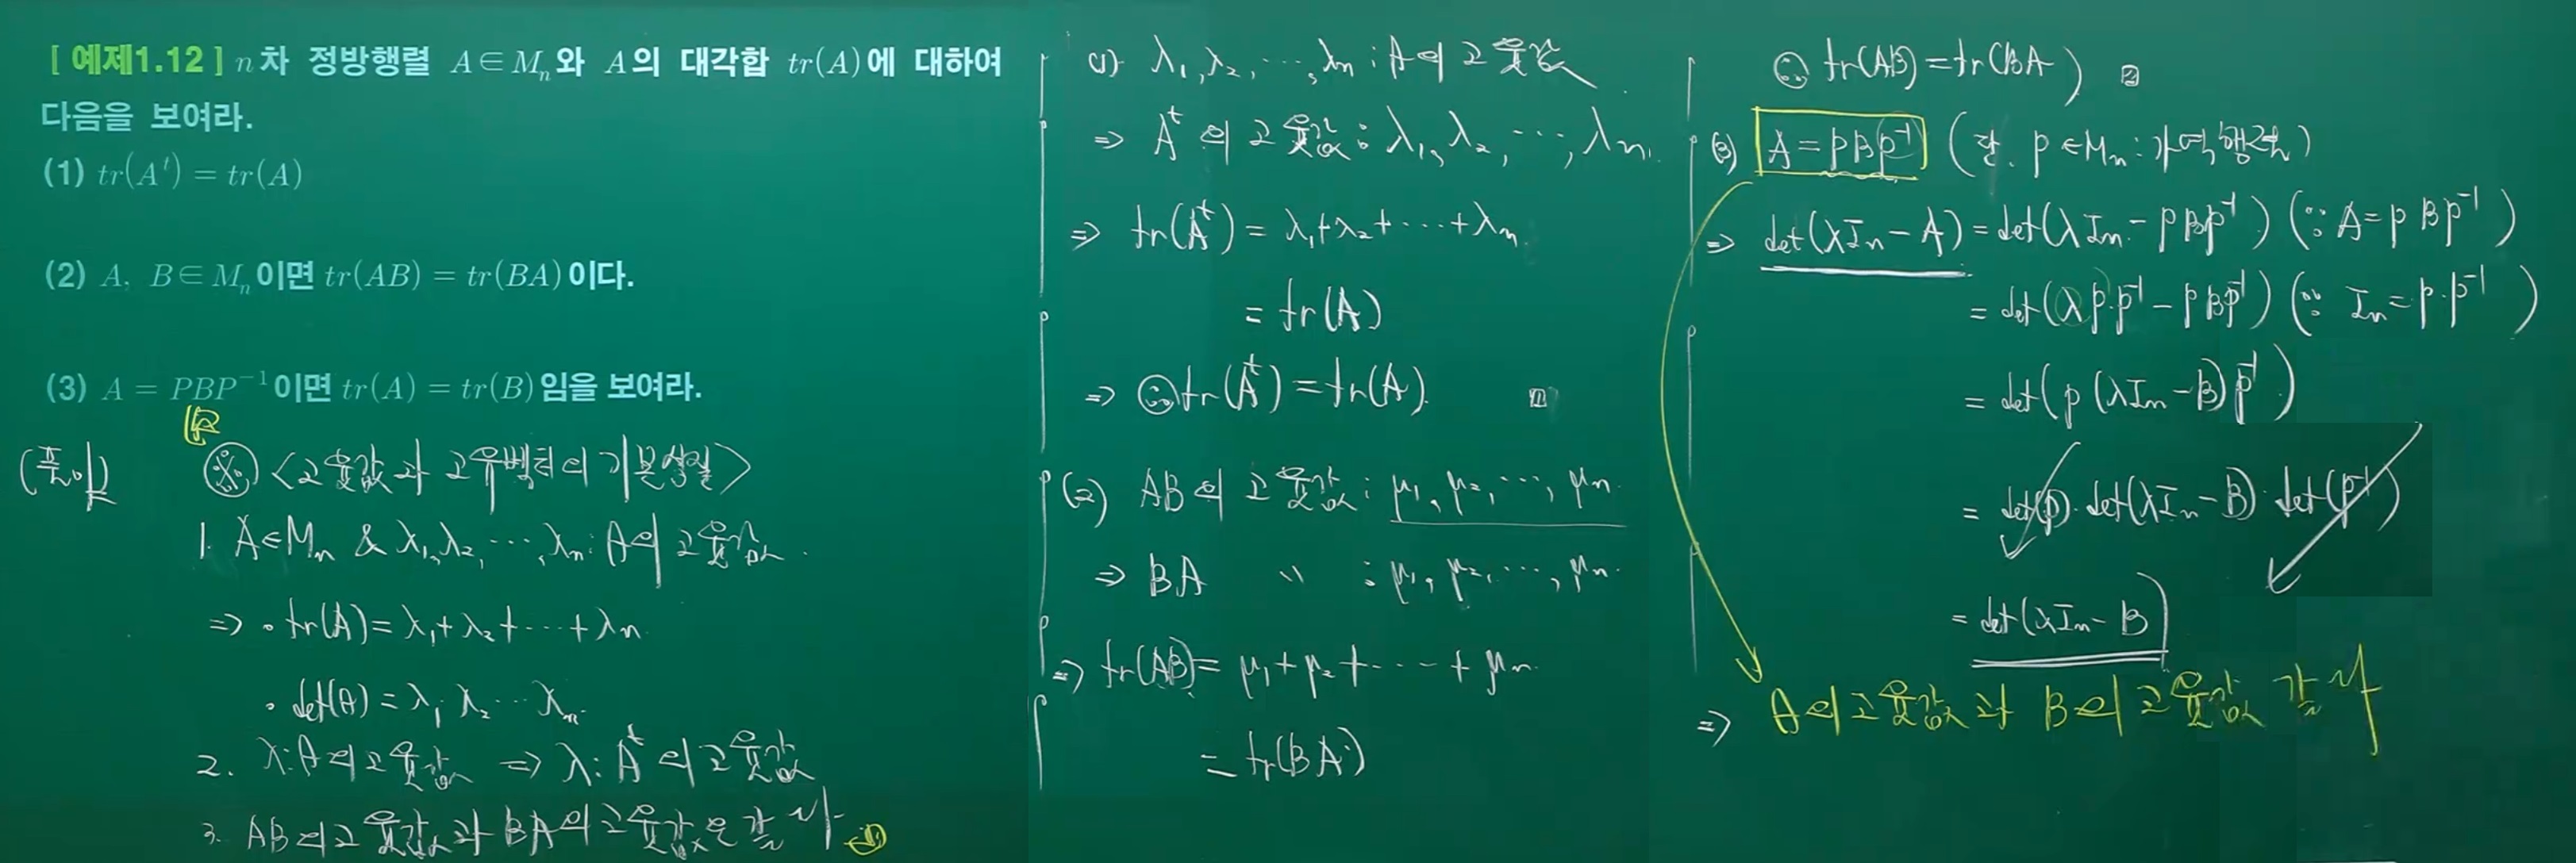 [ 예제1.12 ] n차 정방행렬 A∈Mₙ와 A의 대각합 tr(A)에 대하여
다음을 보여라.
(1) tr(Aᵗ) = tr(A)
(2) A, B∈Mₙ이면 tr(AB) = tr(BA)이다.
(3) A = PBP⁻¹이면 tr(A) = tr(B)임을 보여라.
(풀이)
※ <고윳값과 고유벡터의 기본성질>
1. A∈Mₙ & λ₁, λ₂, ⋯, λₙ : A의 고윳값.
⇒ • tr(A) = λ₁+λ₂+⋯+λₙ.
• det(A) = λ₁ λ₂ ⋯ λₙ.
2. λ : A의 고윳값 ⇒ λ : Aᵗ의 고윳값
3. AB의 고윳값과 BA의 고윳값은 같다.
(1) λ₁, λ₂, ⋯, λₙ : A의 고윳값
⇒ Aᵗ의 고윳값 : λ₁, λ₂, ⋯, λₙ.
⇒ tr(Aᵗ) = λ₁+λ₂+⋯+λₙ
= tr(A)
⇒ ∴ tr(Aᵗ) = tr(A).
(2) AB의 고윳값 : μ₁, μ₂, ⋯, μₙ
⇒ BA 〃 : μ₁, μ₂, ⋯, μₙ
⇒ tr(AB) = μ₁+μ₂+⋯+μₙ
= tr(BA)
∴ tr(AB) = tr(BA)
(3) A = PBP⁻¹ (단. P∈Mₙ : 가역행렬)
⇒ det(λIₙ − A) = det(λIₙ − PBP⁻¹) (∵ A = PBP⁻¹)
= det(λP·P⁻¹ − PBP⁻¹) (∵ Iₙ = P·P⁻¹)
= det(P(λIₙ − B)P⁻¹)
= det(P)·det(λIₙ − B)·det(P⁻¹)
= det(λIₙ − B)
⇒ A의 고윳값과 B의 고윳값 같다